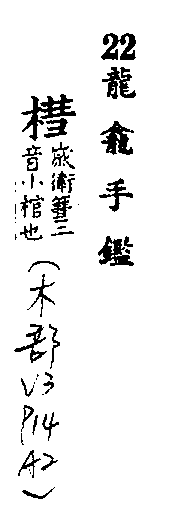 22龍龕手鑑
槥歲衛篲三
音小棺也
(木部
V3
P14
A2)